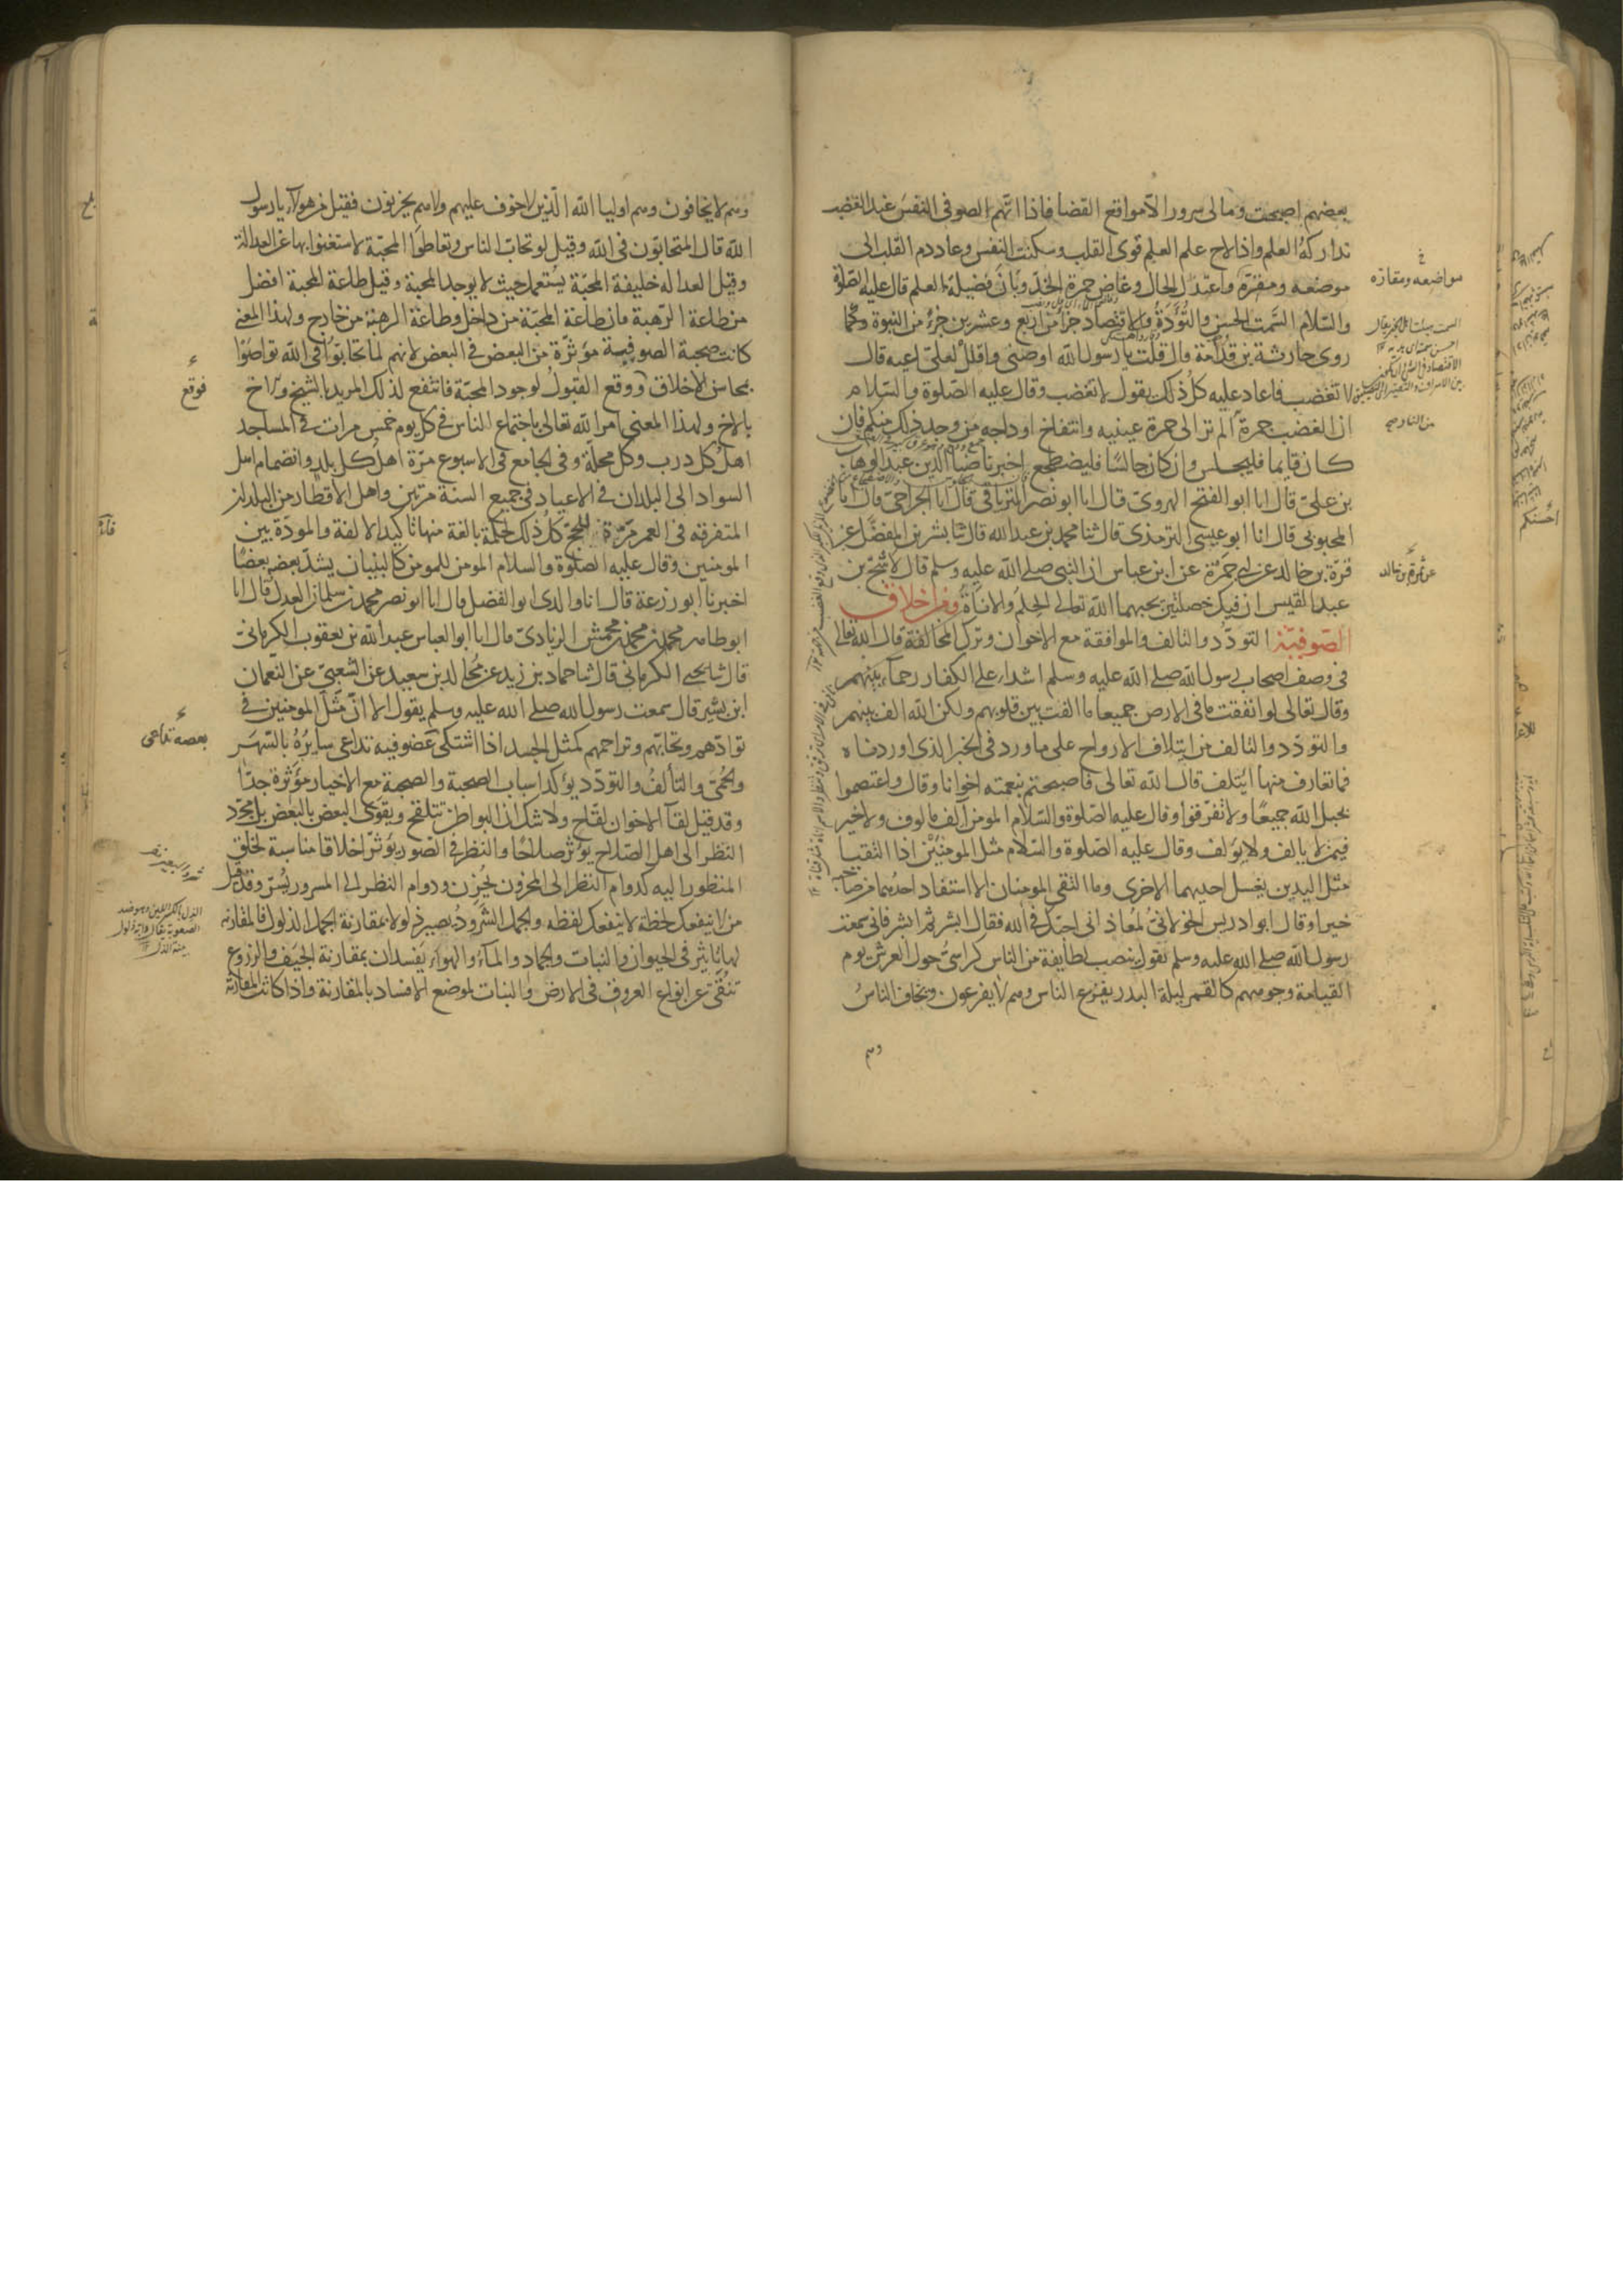 بعضهم اصبحت ومالى سرور الا مواقع القضا فاذا اتهم الصوفى النفس عند الغضب
تداركه العلم واذا لاح علم العلم قوى القلب وسكنت النفس وعاد دم القلب الى
موضعه ومقره واعتدل الحال وغاض حمرة الخد وبان فضيلة العلم قال عليه الصلوة
والسلام السمت الحسن والتؤدة والاقتصاد جزأ من اربع وعشرين جزء من النبوة وكما
روى حارثة بن قدامة قال قلت يا رسول الله اوصنى واقلل لعلى اعيه قال
لا تغضب فاعاد عليه كل ذلك يقول لا تغضب وقال عليه الصلوة والسلام
ان الغضب جمرة الم تر الى حمرة عينيه وانتفاخ اوداجه من وجد ذلك منكم فان
كان قايما فليجلس وان كان جالسا فليضطجع اخبرنا ضيا الدين عبد الوهاب
بن على قال انا ابو الفتح الهروى قال انا ابو نصر الترياقى قال انا الجراحى قال انا
المحبوبى قال انا ابو عيسى الترمذى قال ثنا محمد بن عبد الله قال ثنا بشر بن المفضل عن
قرة بن خالد عن ابى جمرة عن ابن عباس ان النبى صلى الله عليه وسلم قال لاشج بن
عبد القيس ان فيك خصلتين يحبهما الله تعالى الحلم والاناة ومن اخلاق
الصوفية التودد والتالف والموافقة مع الاخوان وترك المخالفة قال الله تعالى
فى وصف اصحاب رسول الله صلى الله عليه وسلم اشداء على الكفار رحماء بينهم
وقال تعالى لو انفقت ما فى الارض جميعا ما الفت بين قلوبهم ولكن الله الف بينهم
والتودد والتالف من ايتلاف الارواح على ما ورد فى الخبر الذى اوردناه
فما تعارف منها ايتلف قال الله تعالى فاصبحتم بنعمته اخوانا وقال واعتصموا
بحبل الله جميعا ولا تفرقوا وقال عليه الصلوة والسلام المومن آلف مالوف ولا خير
فيمن لا يالف ولا يولف وقال عليه الصلوة والسلام مثل المومنين اذا التقيا
مثل اليدين يغسل احديهما الاخرى وما التقى المومنان الا استفاد احدهما من صاحبه
خيرا وقال ابو ادريس الخولانى لمعاذ انى احبك فى الله فقال ابشر ثم ابشر فانى سمعت
رسول الله صلى الله عليه وسلم يقول ينصب لطايفة من الناس كراسى حول العرش يوم
القيامة وجوههم كالقمر ليلة البدر يفزع الناس وهم لا يفزعون ويخاف الناس
وهم
مواضعه ومقاره
عن قرة بن خالد
وهم لا يخافون وهم اوليا الله الذين لا خوف عليهم ولا هم يحزنون فقيل من هولاء يا رسول
الله قال المتحابون فى الله وقيل لو تحاب الناس وتعاطوا المحبة لاستغنوا بها عن العدالة
وقيل العداله خليفة المحبة يستعمل حيث لا يوجد المحبة وقيل طاعة المحبة افضل
من طاعة الرهبة فان طاعة المحبة من داخل وطاعة الرهبة من خارج ولهذا المعنى
كانت صحبة الصوفية مؤثرة من البعض فى البعض لانهم لما تحابوا فى الله تواصوا
بمحاسن الاخلاق ووقع القبول لوجود المحبة فانتفع لذلك المريد بالشيخ والاخ
بالاخ ولهذا المعنى امر الله تعالى باجتماع الناس فى كل يوم خمس مرات فى المساجد
اهل كل درب وكل محلة وفى الجامع فى الاسبوع مرة اهل كل بلد وانضمام اهل
السواد الى البلدان فى الاعياد فى جميع السنة مرتين واهل الاقطار من البلدان
المتفرقه فى العمر مرة للحج كل ذلك لحكمة بالغة منها تاكيد الالفة والمودة بين
المومنين وقال عليه الصلوة والسلام المومن للمومن كالبنيان يشد بعضه بعضا
اخبرنا ابو زرعة قال انا والدى ابو الفضل قال انا ابو نصر محمد بن سلمان العدل قال انا
ابو طاهر محمد بن محمد بن محمش الزيادى قال انا ابو العباس عبد الله بن يعقوب الكرمانى
قال ثنا يحيى الكرمانى قال ثنا حماد بن زيد عن مجالد بن سعيد عن الشعبى عن النعمان
ابن بشير قال سمعت رسول الله صلى الله عليه وسلم يقول الا ان مثل المومنين فى
توادهم وتحابهم وتراحمهم كمثل الجسد اذا اشتكى عضو فيه تداعى سايره بالسهر
والحمى والتالف والتودد يؤكد اسباب الصحبة والصحبة مع الاخيار مؤثرة جدا
وقد قيل لقآ الاخوان لقاح ولا شك ان البواطن تتلقح ويقوى البعض بالبعض بل بمجرد
النظر الى اهل الصلاح يؤثر صلاحا والنظر فى الصور يؤثر اخلاقا مناسبة لخلق
المنظور اليه كدوام النظر الى المحزون يحزن ودوام النظر الى المسرور يسر وقد قيل
من لا ينفعك لحظه لا ينفعك لفظه والجمل الشرود يصير ذلولا بمقارنة الجمل الذلول فالمقارنه
لها تاثير فى الحيوان والنبات والجماد والماء والهواء يفسدان بمقارنة الجيف والزروع
تنقى عن انواع العروق فى الارض والنبات لموضع الافساد بالمقارنة واذا كانت المقارنة
فوقع
بعضه تداعى